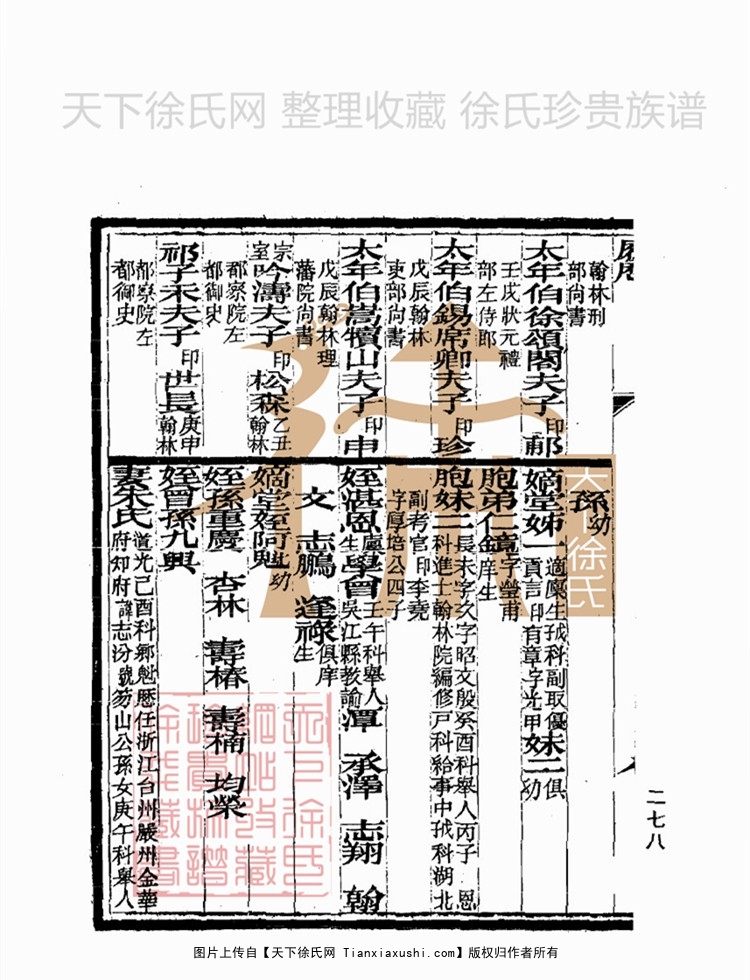 天下徐氏网 整理收藏 徐氏珍贵族谱
翰林刑
部尚書
太年伯徐頌閣夫子印郙
壬戌狀元禮
部左侍郎
太年伯錫席卿夫子印珍
戊辰翰林
吏部尚書
太年伯嵩犢山夫子印申
戊辰翰林理
藩院尚書
宗室吟濤夫子印松森乙丑翰林
都察院左
都御史
祁子禾夫子印世長庚申翰林
都察院左
都御史
孫幼
嫡堂姊一適廩生科副取優
貢言印有章字光甲妹二俱幼
胞弟仁鏡字瑩甫
庠生
胞妹二長未字次字昭文殷癸酉科舉人丙子恩
科進士翰林院編修戸科給事中科湖北
副考官印李堯
字厚培公四子
姪湛恩庠生學曾壬午科舉人吳江縣教諭潭 承澤 志翔 翰
文 志鵬 逢祿俱庠生
嫡堂姪阿魁幼
姪孫重慶 杏林 壽椿 壽楠 均榮
姪曾孫九興
妻朱氏道光己酉科鄉魁歷任浙江台州嚴州金華
府知府諱志汾號笏山公孫女庚午科舉人
二七八
天下徐氏
图片上传自【天下徐氏网 Tianxiaxushi.com】版权归作者所有